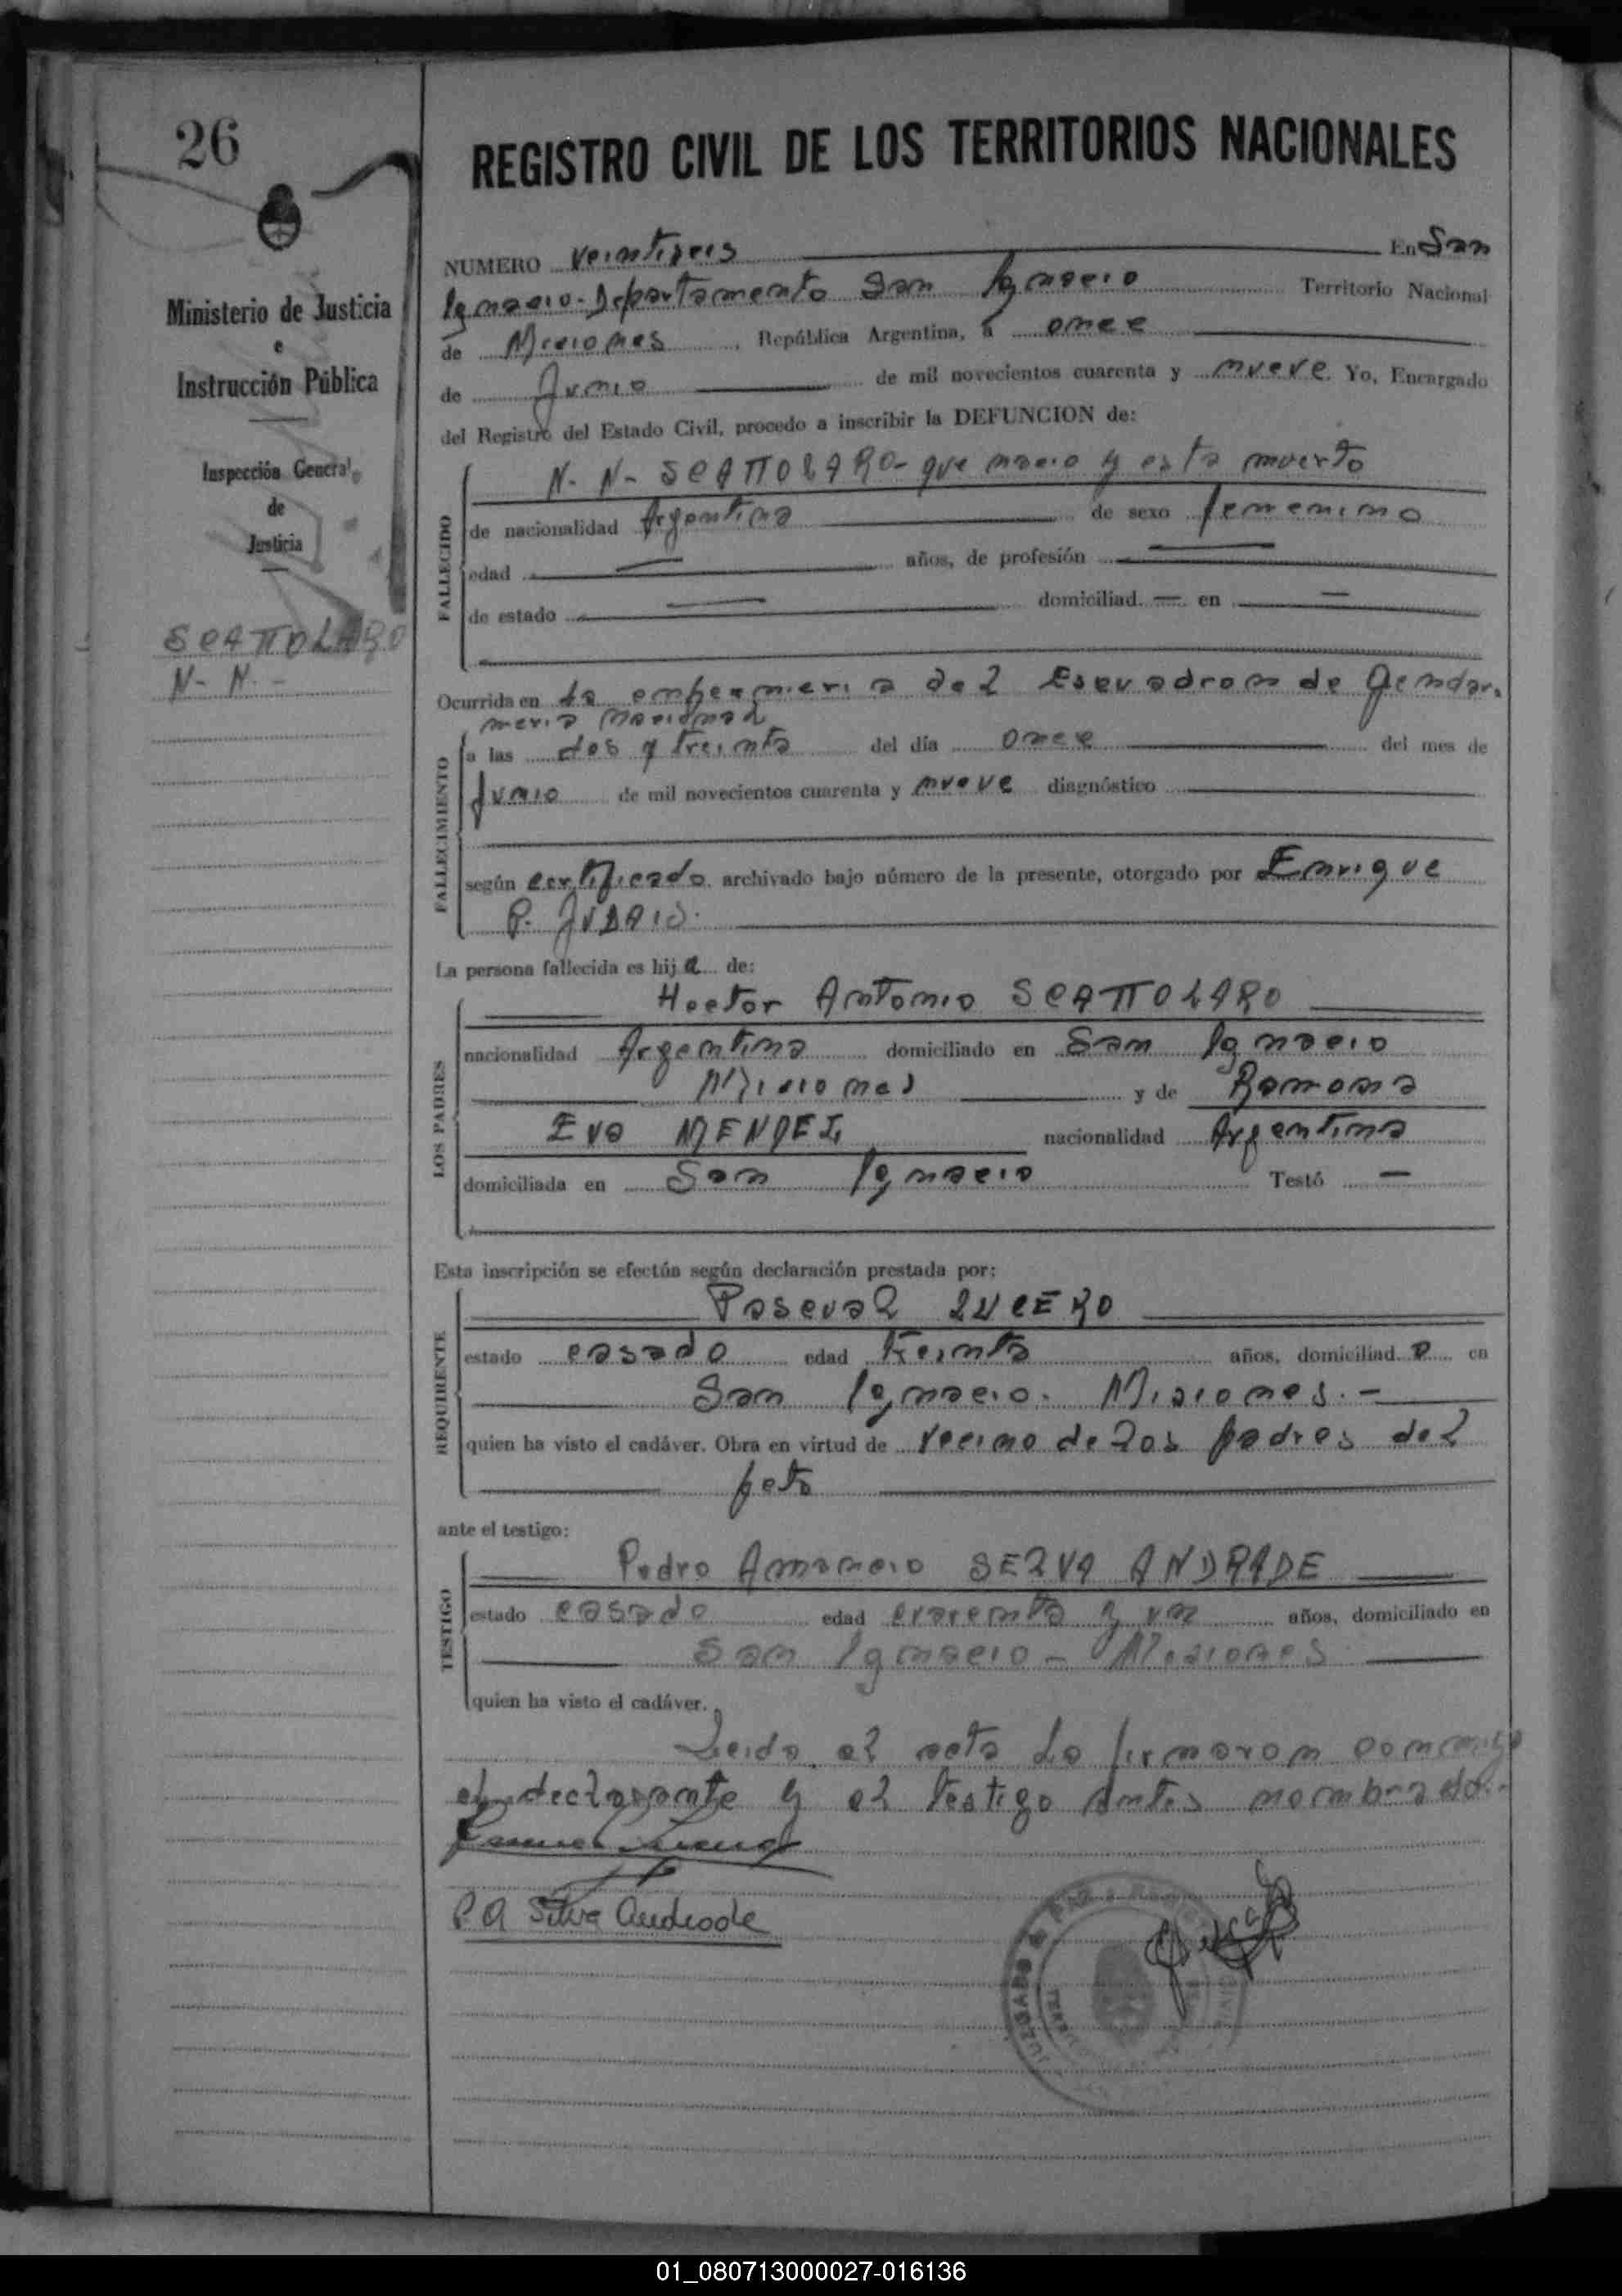 26
REGISTRO CIVIL DE LOS TERRITORIOS NACIONALES
Ministerio de Justicia
e
Instrucción Pública
Inspección General
de
Justicia
SCATTOLARO
N- N.-
NUMERO veintiseis En San
Ignacio-Departamento San Ignacio Territorio Nacional
de Misiones, República Argentina, a once
de Junio de mil novecientos cuarenta y nueve. Yo, Encargado
del Registro del Estado Civil, procedo a inscribir la DEFUNCION de:
N- N- SCATTOLARO- que nacio y esta muerto
FALLECIDO
de nacionalidad Argentina de sexo femenino
edad — años, de profesión —
de estado — domiciliad — en —
Ocurrida en la enfermeria del Escuadron de Gendar-
meria Nacional
FALLECIMIENTO
a las dos y treinta del día once del mes de
Junio de mil novecientos cuarenta y nueve diagnóstico
según certificado archivado bajo número de la presente, otorgado por Enrique
P.
La persona fallecida es hija de:
LOS PADRES
Hector Antonio SCATTOLARO
nacionalidad Argentina domiciliado en San Ignacio
Misiones y de Ramona
Eva MENDEZ nacionalidad Argentina
domiciliada en San Ignacio Testó —
Esta inscripción se efectúa según declaración prestada por:
REQUIRENTE
Pascual LUCERO
estado casado edad treinta años, domiciliado en
San Ignacio. Misiones.-
quien ha visto el cadáver. Obra en virtud de vecino de los padres del
feto
ante el testigo:
TESTIGO
Pedro Amancio SELVA ANDRADE
estado casado edad cuarenta y un años, domiciliado en
San Ignacio - Misiones
quien ha visto el cadáver.
Leida el acta la firmaron conmigo
el declarante y el testigo antes nombrado.-
P A Silva Andrade
JUZGADO
01_080713000027-016136